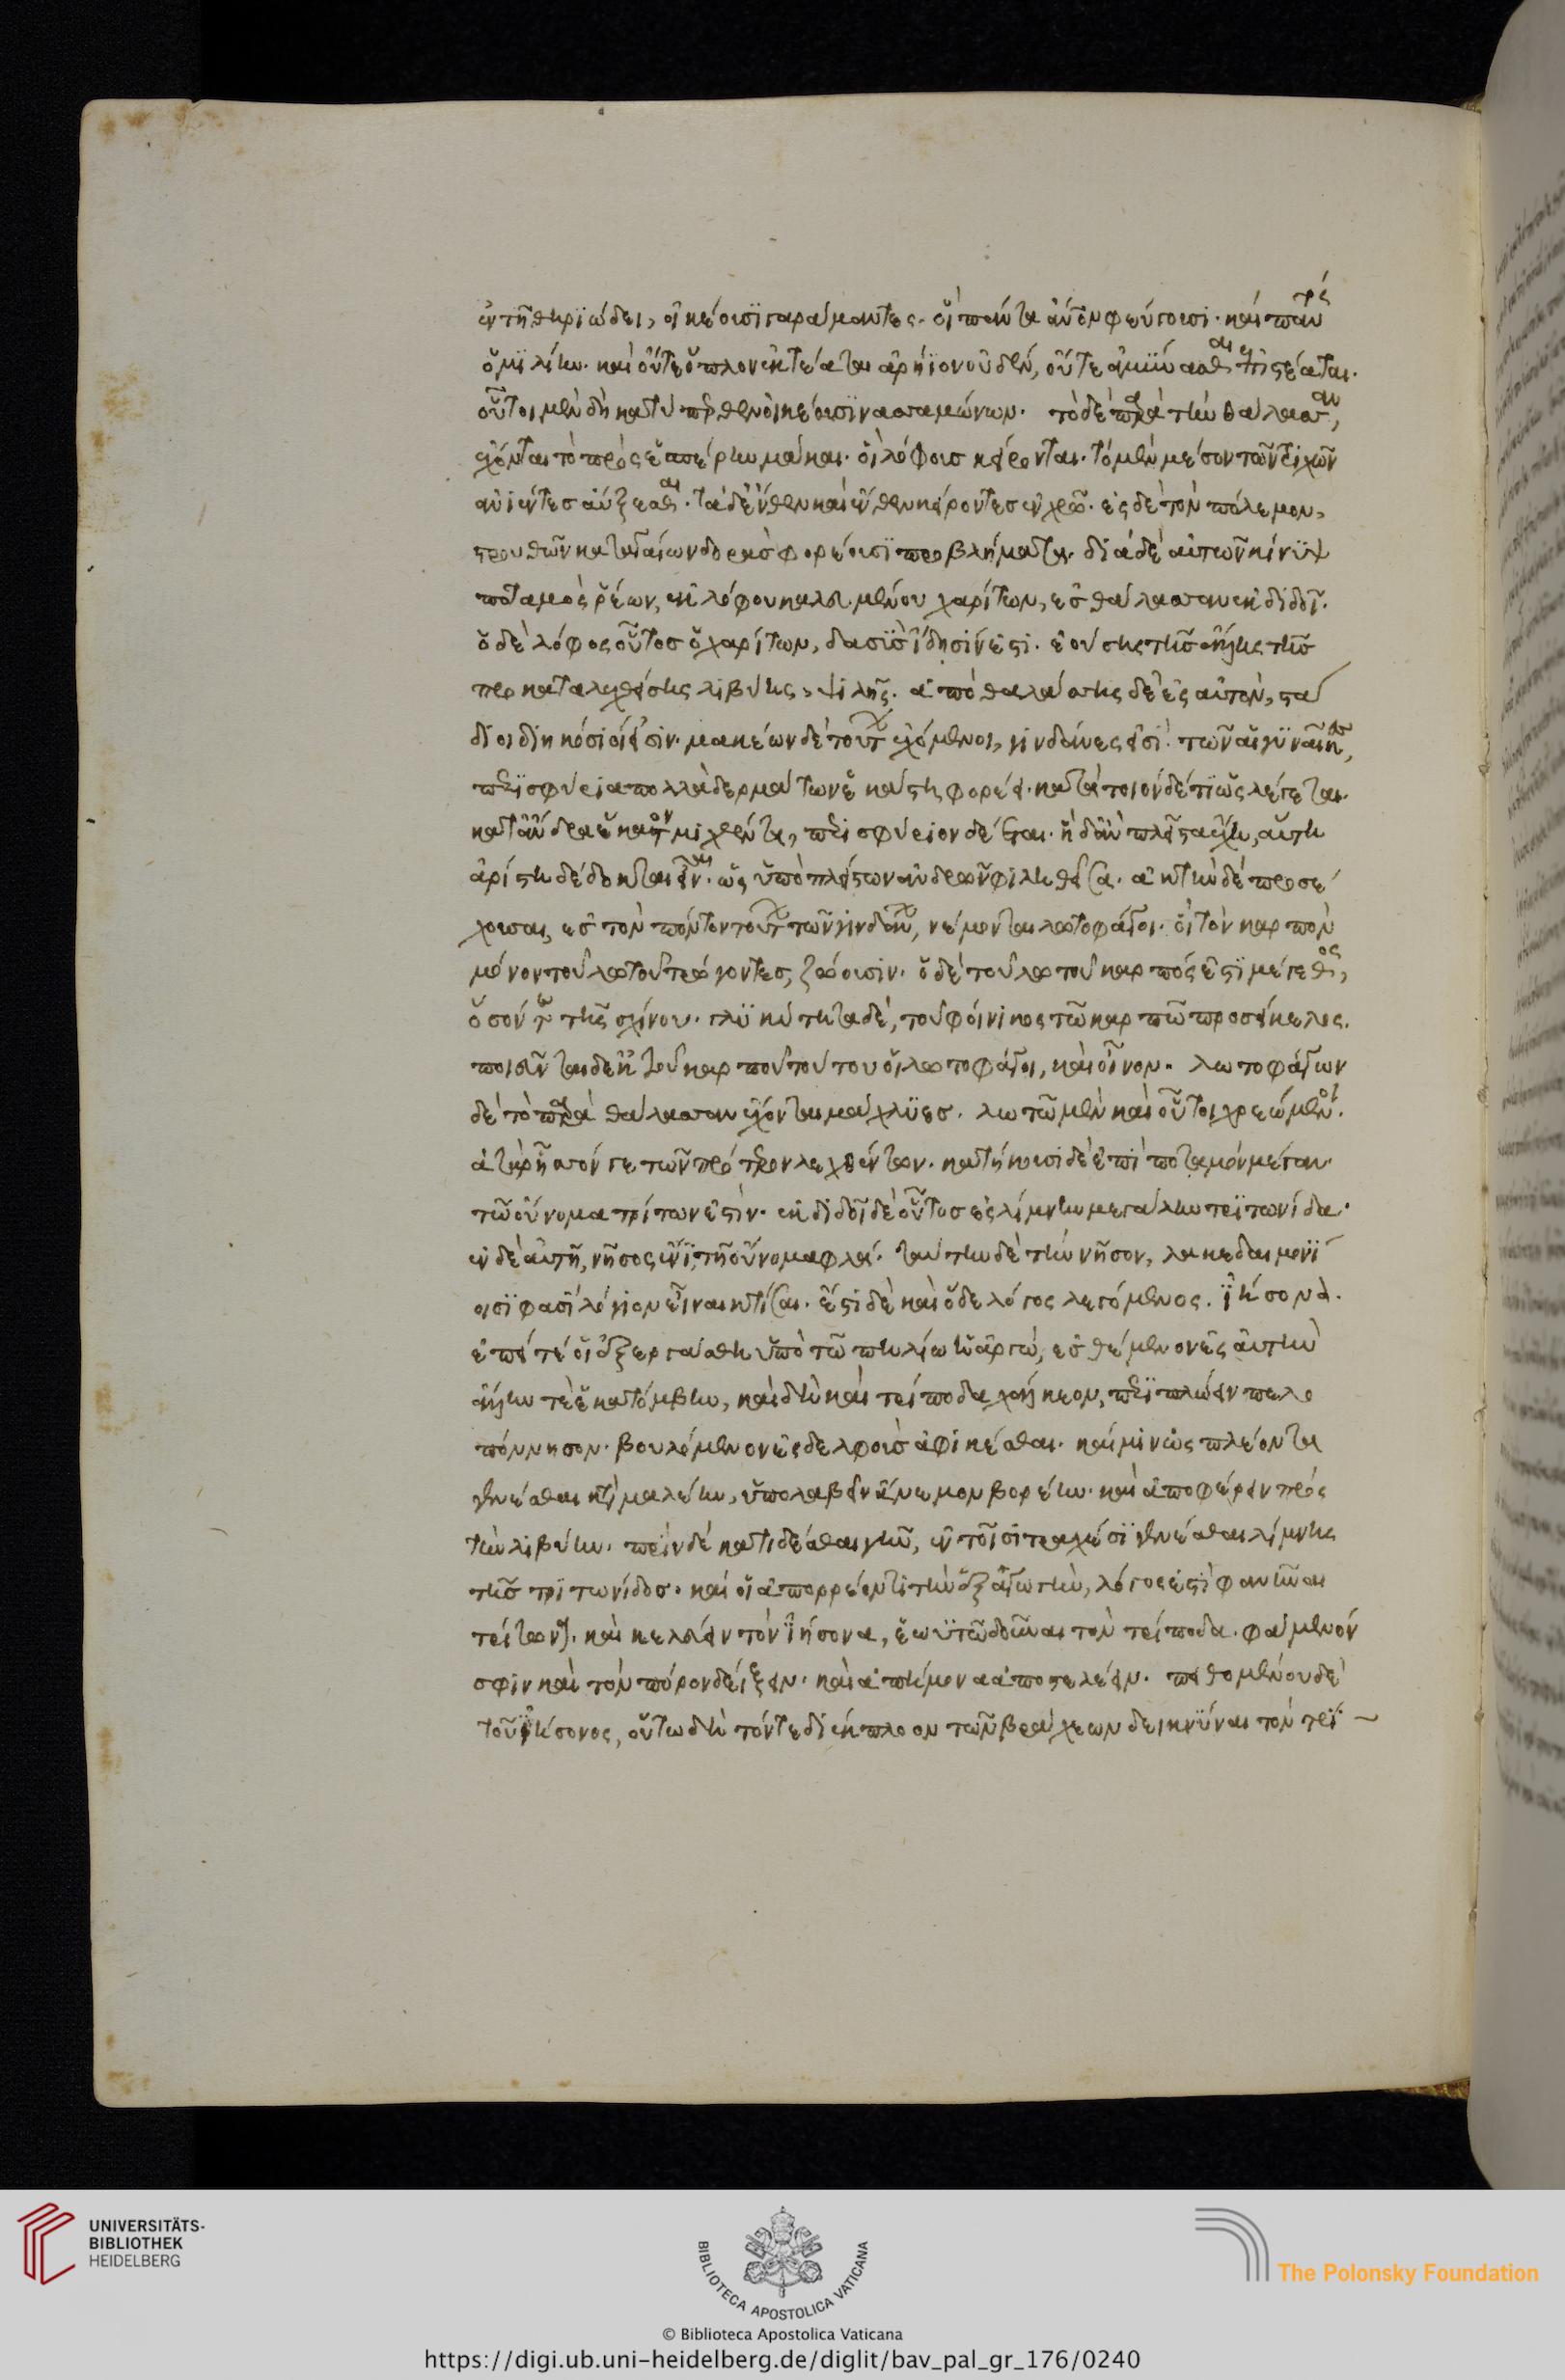 ἐν τῇ θηριώδει, οἰκέουσι γαράμαντες. οἳ πάντα ἄνθρωπον φεύγουσι. καὶ παντὸς
ὁμιλίην. καὶ οὔτε ὅπλον ἐκτέαται ἀρήϊον οὐδέν, οὔτε ἀμύνασθαι ἐπιστέαται.
οὗτοι μὲν δὴ κατύπερθεν οἰκέουσι νασαμώνων. τὸ δὲ παρὰ τὴν θάλασσαν,
ἔχονται τὸ πρὸς ἑσπέρην μάκαι. οἳ λόφους κείρονται. τὸ μὲν μέσον τῶν τριχῶν
ἀνιέντες αὔξεσθαι. τὰ δὲ ἔνθεν καὶ ἔνθεν κείροντες ἐν χρῷ. ἐς δὲ τὸν πόλεμον,
στρουθῶν καταγαίων δορὰς φορέουσι προβλήματα. διὰ δὲ αὐτῶν κίνυψ
ποταμὸς ῥέων, ἐκ λόφου καλευμένου χαρίτων, ἐς θάλασσαν ἐκδιδοῖ.
ὁ δὲ λόφος οὗτος ὁ χαρίτων, δασὺς ἴδῃσίν ἐστι. ἐούσης τῆς ἄλλης τῆς
προκαταλεχθείσης λιβύης, ψιλῆς. ἀπὸ θαλάσσης δὲ ἐς αὐτὸν, στά
διοι διηκόσιοί εἰσιν. μακέων δὲ τούτων ἐχόμενοι, γινδᾶνες εἰσί. τῶν αἱ γυναῖκες,
περισφύρια πολλὰ δερμάτων ἑκάστη φορέει. κατὰ τοιόνδε τι ὡς λέγεται.
κατ' ἄνδρα ἕκαστον μιχθέντα, περισφύριον δέεται. ἣ δ' ἂν πλεῖστα ἔχῃ, αὕτη
ἀρίστη δέδοκται εἶναι. ὡς ὑπὸ πλείστων ἀνδρῶν φιληθεῖσα. ἀκτὴν δὲ προσέ
χουσαν ἐς τὸν πόντον τούτων τῶν γινδάνων, νέμονται λωτοφάγοι. οἳ τὸν καρπὸν
μόνον τοῦ λωτοῦ τρώγοντες, ζώουσιν. ὁ δὲ τοῦ λωτοῦ καρπός ἐστι μέγεθος,
ὅσον τε τῆς σχίνου. γλυκύτητα δέ, τοῦ φοίνικος τῷ καρπῷ προσείκελος.
ποιεῦνται δὲ ἐκ τοῦ καρποῦ τούτου οἱ λωτοφάγοι, καὶ οἶνον. λωτοφάγων
δὲ τὸ παρὰ θάλασσαν ἔχονται μάχλυες. λωτῷ μὲν καὶ οὗτοι χρεώμενοι.
ἀτὰρ ἧσσόν γε τῶν πρότερον λεχθέντων. κατήκουσι δὲ ἐπὶ ποταμὸν μέγαν.
τῷ οὔνομα τρίτων ἐστίν. ἐκδιδοῖ δὲ οὗτος ἐς λίμνην μεγάλην τριτωνίδα.
ἐν δὲ αὐτῇ, νῆσος ἔνι, τῇ οὔνομα φλά. ταύτην δὲ τὴν νῆσον, λακεδαιμονί
οισι φασὶ λόγιον εἶναι κτίσαι. ἔστι δὲ καὶ ὅδε λόγος λεγόμενος. ἰήσονα.
ἐπεί τέ οἱ ἐξεργάσθη ὑπὸ τῷ πηλίῳ ἡ ἀργώ, ἐσθέμενον ἐς αὐτὴν
ἄλλην τὲ ἑκατόμβην, καὶ δὴ καὶ τρίποδα χάλκεον, περιπλώειν πελο
πόννησον. βουλόμενον ἐς δελφοὺς ἀφικέσθαι. καί μιν ὡς πλέοντα
γενέσθαι κατὰ μαλέην, ὑπολαβεῖν ἄνεμον βορέην. καὶ ἀποφέρειν πρὸς
τὴν λιβύην. πρὶν δὲ κατιδέσθαι γῆν, ἐν τοῖσι βραχέσι γενέσθαι λίμνης
τῆς τριτωνίδος. καί οἱ ἀπορρέοντι τὴν ἐξαγωγὴν, λόγος ἐστὶ φανῆναι
τρίτωνα. καὶ κελεύειν τὸν ἰήσονα, ἑωυτῷ δοῦναι τὸν τρίποδα. φάμενόν
σφιν καὶ τὸν πόρον δείξειν. καὶ ἀπήμονα ἀποστελέειν. πειθομένου δὲ
τοῦ ἰήσονος, οὕτω δὴ τόν τε διέκπλοον τῶν βραχέων δεικνύναι τὸν τρί
UNIVERSITÄTS-
BIBLIOTHEK
HEIDELBERG
BIBLIOTECA APOSTOLICA VATICANA
The Polonsky Foundation
© Biblioteca Apostolica Vaticana
https://digi.ub.uni-heidelberg.de/diglit/bav_pal_gr_176/0240